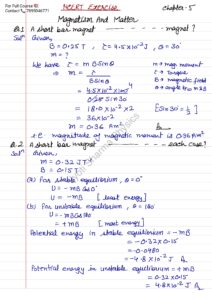 For Full Course
Contact: 7999046771
NCERT EXERCISE
chapter - 5
Magnetism And Matter
Q.1 A short bar magnet ———— magnet ?
Solⁿ Given,
B = 0.25 T , τ = 4.5×10⁻² J , θ = 30°
m = ?
We have τ = m B sinθ
m → mag. moment
⇒ m = τ / B sinθ
τ → Torque
B → Magnetic field
= 4.5×10⁻² × 100 / 0.25 sin 30
θ → angle b/w
= 18.0 × 10⁻² × 2 [sin 30 = 1/2]
= 36×10⁻²
m = 0.36 Am²
The magnitude of magnetic moment is 0.36 Am²
Q.2 A short bar magnet ———— each case?
Solⁿ Given,
m = 0.32 JT⁻¹
B = 0.15 T
(a) For stable equilibrium , θ = 0°
U = -mB cos 0°
U = -mB [least energy]
(b) For unstable equilibrium , θ = 180
U = -mB cos 180
= +mB [most energy]
Potential energy in stable equilibrium = -mB
= -0.32×0.15
= -0.0480
= -4.8×10⁻² J
Potential energy in unstable equilibrium = +mB
= 0.32×0.15
= 4.8×10⁻² J